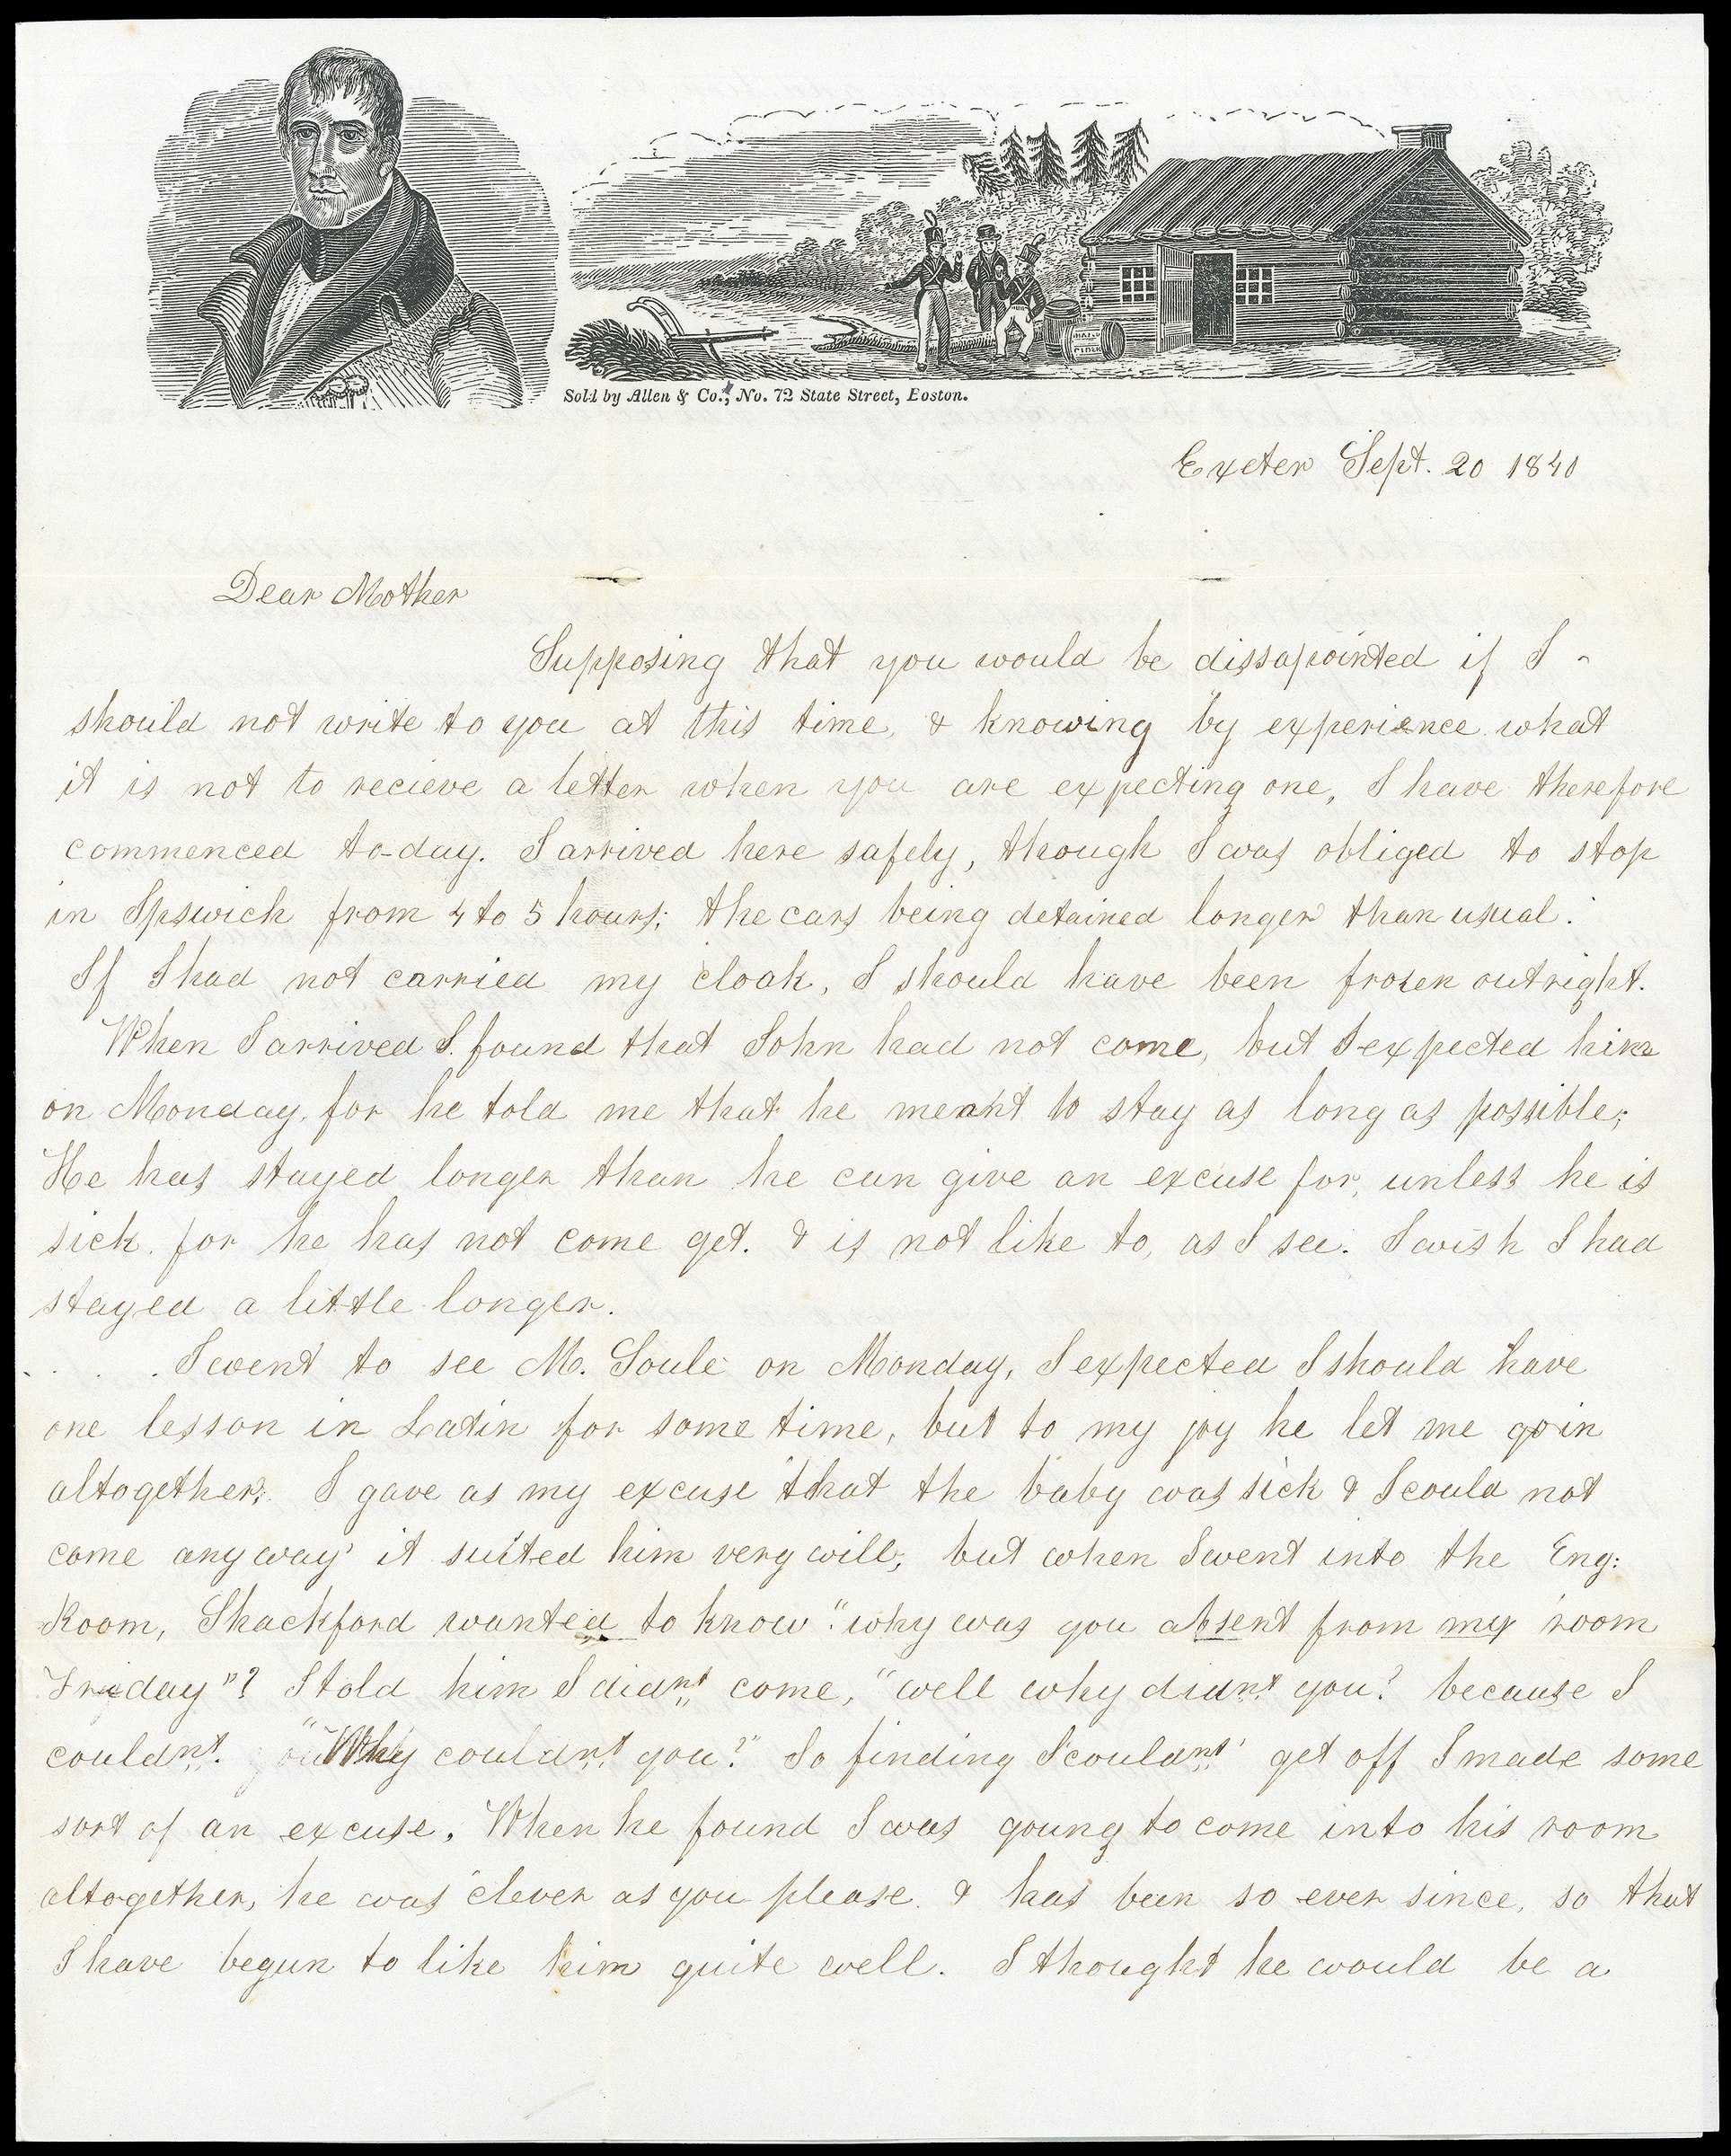 HARD
CIDER
Sold by Allen & Co., No. 72 State Street, Boston.
Exeter Sept. 20 1840
Dear Mother
Supposing that you would be dissapointed if I
should not write to you at this time, & knowing by experience what
it is not to recieve a letter when you are expecting one, I have therefore
commenced to-day. I arrived here safely, though I was obliged to stop
in Ipswich from 4 to 5 hours; the cars being detained longer than usual.
If I had not carried my cloak, I should have been frozen outright.
When I arrived I found that John had not come, but I expected him
on Monday, for he told me that he meant to stay as long as possible;
He has stayed longer than he can give an excuse for, unless he is
sick. for he has not come yet. & is not like to, as I see. I wish I had
stayed a little longer.
I went to see M. Soule on Monday, I expected I should have
one lesson in Latin for some time, but to my joy he let me go in
altogether; I gave as my excuse that the baby was sick & I could not
come any way it suited him very well; but when I went into the Eng:
Room, Shackford wanted to know "why was you absent from my room
Friday"? I told him I didnt come, "well why didnt you? because I
couldnt. "Why couldnt you?" So finding I couldnt get off I made some
sort of an excuse. When he found I was going to come into his room
altogether, he was clever as you please. & has been so ever since, so that
I have begun to like him quite well. I thought he would be a